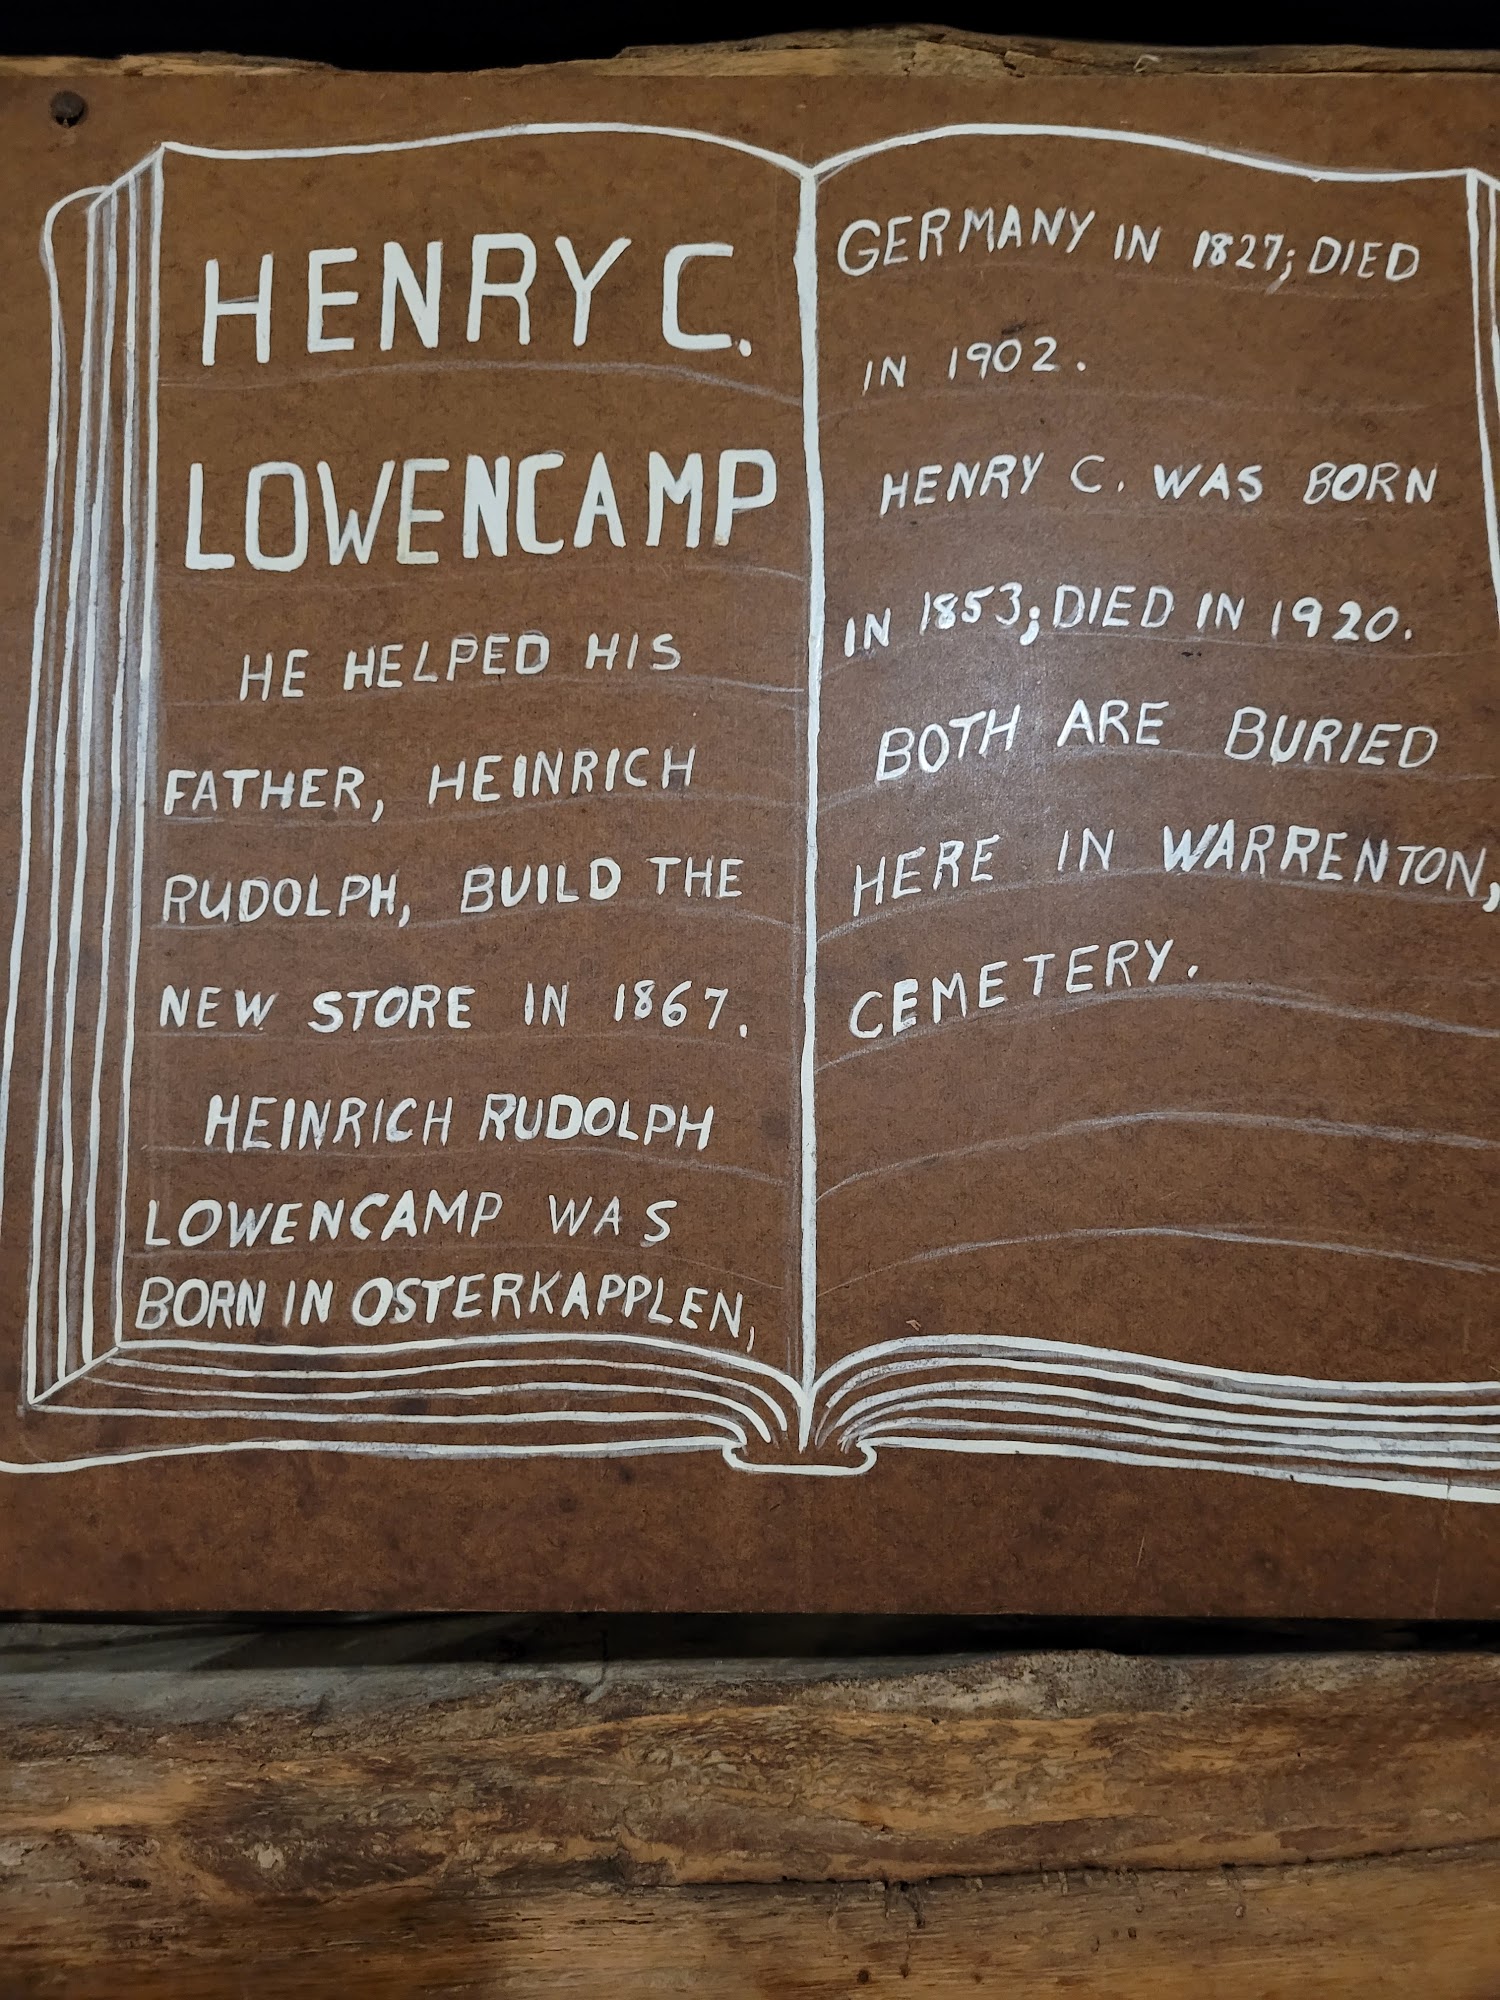 HENRY C.
LOWENCAMP
HE HELPED HIS
FATHER, HEINRICH
RUDOLPH, BUILD THE
NEW STORE IN 1867.
HEINRICH RUDOLPH
LOWENCAMP WAS
BORN IN OSTERKAPPLEN,
GERMANY IN 1827; DIED
IN 1902.
HENRY C. WAS BORN
IN 1853; DIED IN 1920.
BOTH ARE BURIED
HERE IN WARRENTON,
CEMETERY.